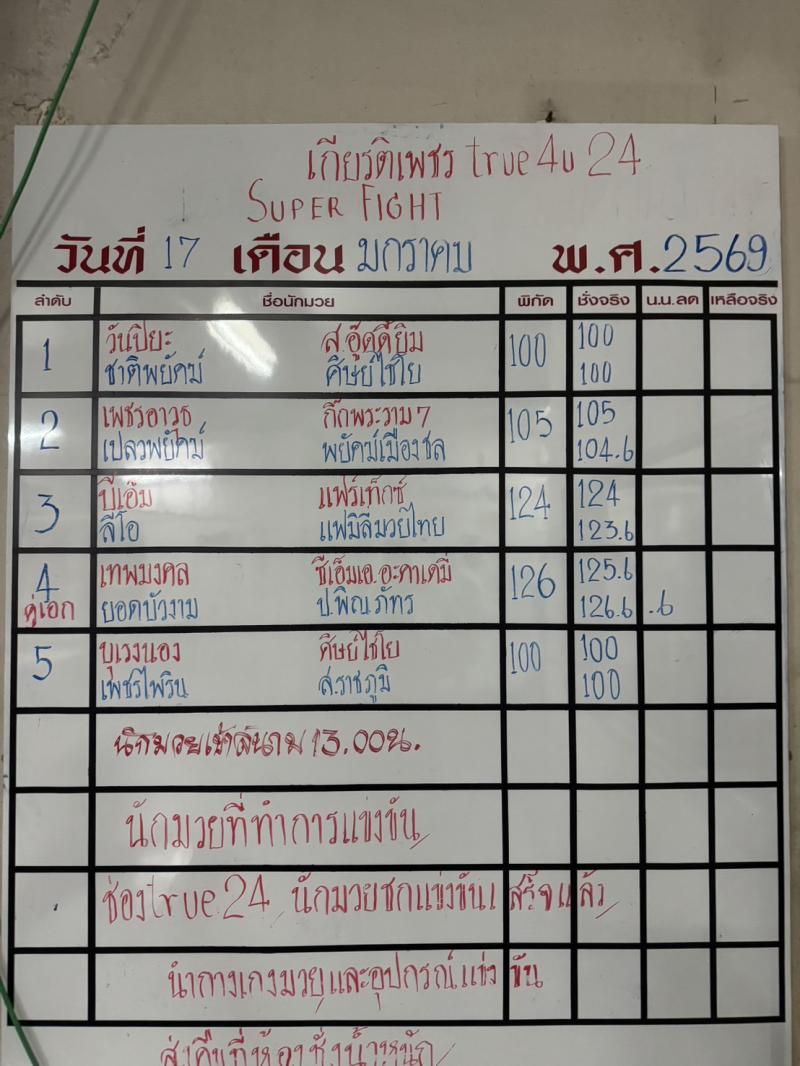 เกียรติเพชร true4u 24
SUPER FIGHT
วันที่ 17 เดือน มกราคม พ.ศ.2569
ลำดับ ชื่อนักมวย พิกัด ชั่งจริง น.น.ลด เหลือจริง
1 วันปิยะ ส.อู๊ดดี้ยิม 100 100
ชาติพยัคฆ์ ศิษย์ไชโย 100
2 เพชรอาวุธ กิ๊กพระราม7 105 105
เปลวพยัคฆ์ พยัคฆ์เมืองชล 104.6
3 บีเอ็ม แฟร์เท็กซ์ 124 124
ลีโอ แฟมิลี่มวยไทย 123.6
4 เทพมงคล ซีเอ็มเอ.อะคาเดมี่ 126 125.6
คู่เอก ยอดบัวงาม ป.พิณภัทร 126.6 .6
5 บุเรงนอง ศิษย์ไชโย 100 100
เพชรไพริน ส.ราชภูมิ 100
นักมวยเข้าสนาม 13.00น.
นักมวยที่ทำการแข่งขัน
ช่องtrue24 นักมวยชกแข่งขันเสร็จแล้ว
นำกางเกงมวยและอุปกรณ์แข่งขัน
ส่งคืนที่ห้องชั่งน้ำหนัก